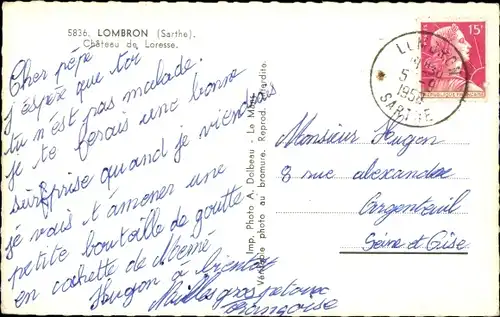 5836. LOMBRON (Sarthe).
Château de Loresse.
Cher pépé
j'éspère que toi
tu n'est pas malade.
je te ferais une bonne
surprise quand je viendrais
je vais t'amener une
petite bouteille de goutte
en cachette de mémé
Hugon a bientot
Milles gros
Françoise
Imp. Photo A. Dolbeau - Le Mans
Véritable photo au bromure. Reprod. interdite.
15F
5
1958
SARTHE
Monsieur Hugon
8 rue alexandre
Argenteuil
Seine et Oise